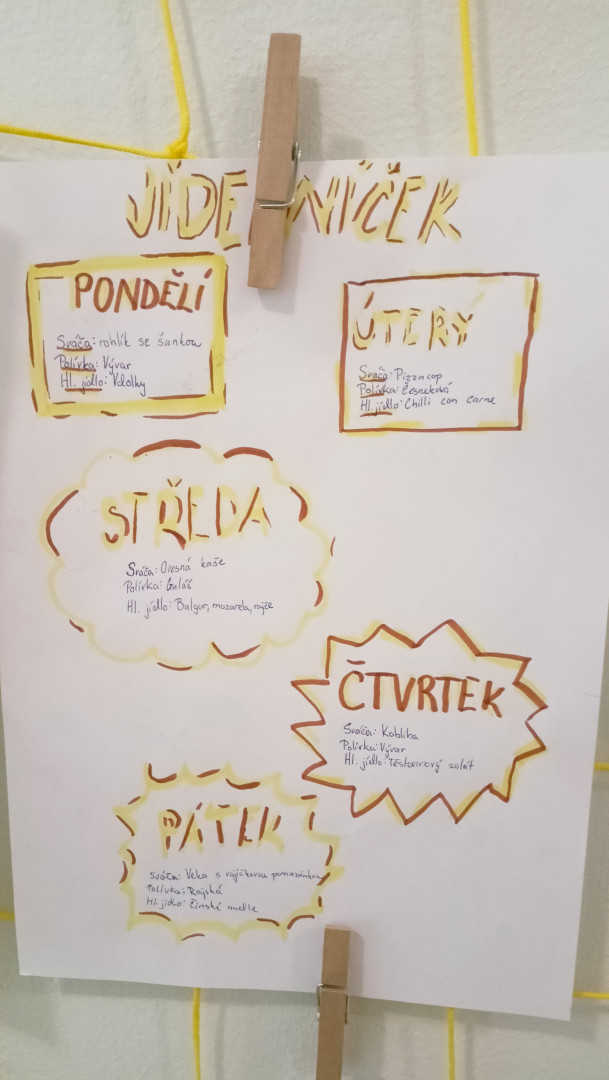 JÍDE NÍČEK
PONDĚLÍ
Sváča: rohlík se šunkou
Polívka: Vývar
Hl. jídlo: Vdolky
ÚTERÝ
Sváča: Pizza cop
Polívka: Česneková
Hl. jídlo: Chilli con carne
STŘEDA
Sváča: Ovesná kaše
Polívka: Guláš
Hl. jídlo: Balgur, mozarela, rajče
ČTVRTEK
Sváča: Kobliha
Polívka: Vývar
Hl. jídlo: Těstovinový salát
PÁTEK
sváča: Veka s vajíčkovou pomazánkou
Polívka: Rajská
Hl. jídlo: Čínské nudle